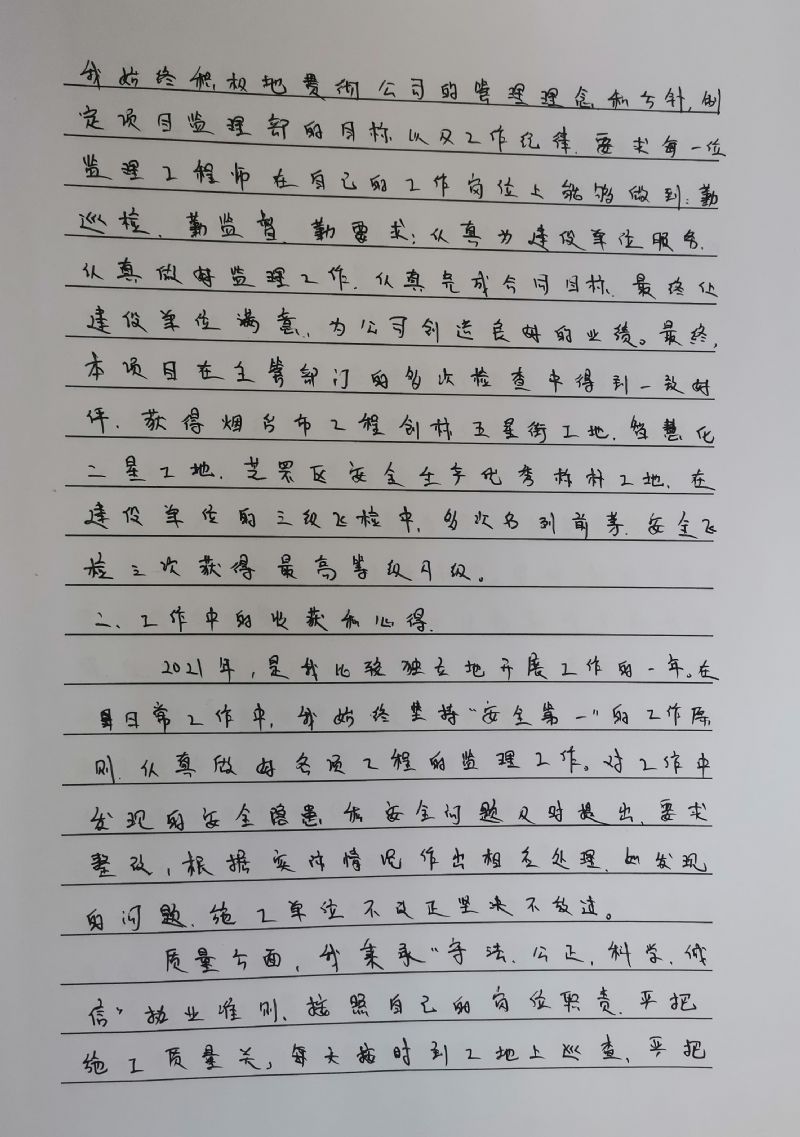 我始终积极地贯彻公司的管理理念和方针,制
定项目监理部的目标以及工作纪律,要求每一位
监理工程师在自己的工作岗位上能够做到:勤
巡检、勤监督、勤要求;认真为建设单位服务,
认真做好监理工作,认真完成合同目标,最终让
建设单位满意,为公司创造良好的业绩。最终,
本项目在主管部门的多次检查中得到一致好
评,获得烟台市工程创标五星街工地,智慧化
二星工地,芝罘区安全生产优秀标杆工地,在
建设单位的三级飞检中,多次名列前茅,安全飞
检三次获得最高等级A级。
二、工作中的收获和心得.
2021年,是我比较独立地开展工作的一年。在
日常工作中,我始终坚持“安全第一”的工作原
则,认真做好各项工程的监理工作。对工作中
发现的安全隐患和安全问题及时提出,要求
整改,根据实际情况作出相应处理,如发现
的问题,施工单位不改正坚决不放过。
质量方面,我秉承“守法、公正、科学、诚
信”执业准则,按照自己的岗位职责,严把
施工质量关,每天按时到工地上巡查,严把